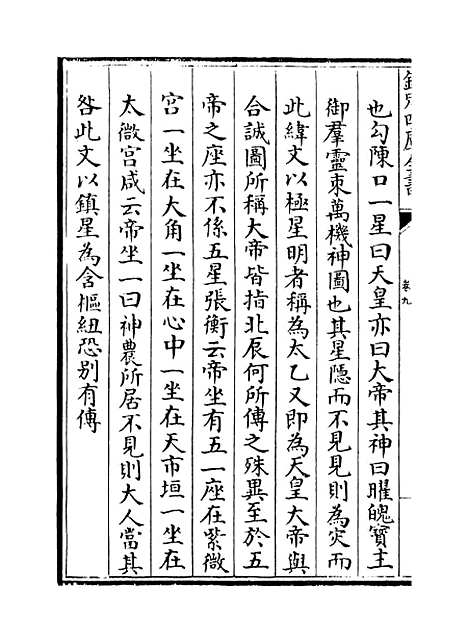 欽定四庫全書
卷九
也勾陳口一星曰天皇亦曰大帝其神曰曜魄寶主
御羣靈秉萬機神圖也其星隱而不見見則為灾而
此緯文以極星明者稱為太乙又即為天皇大帝與
合誠圖所稱大帝皆指北辰何所傳之殊異至於五
帝之座亦不係五星張衡云帝坐有五一座在紫微
宫一坐在大角一坐在心中一坐在天市垣一坐在
太微宫咸云帝坐一曰神農所居不見則大人當其
咎此文以鎮星為含樞紐恐别有傳